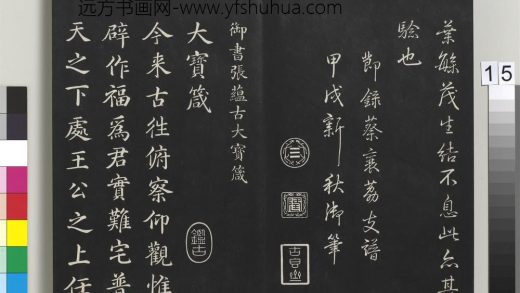 远方书画网-www.yfshuhua.com
葉繁茂生結不息此亦其
驗也
節錄蔡襄荔支譜
甲戌新秋御筆
御書張蘊古大寶箴
大寶箴
今来古往俯察仰觀惟
辟作福爲君實難宅普
天之下處王公之上任
鑑古
15